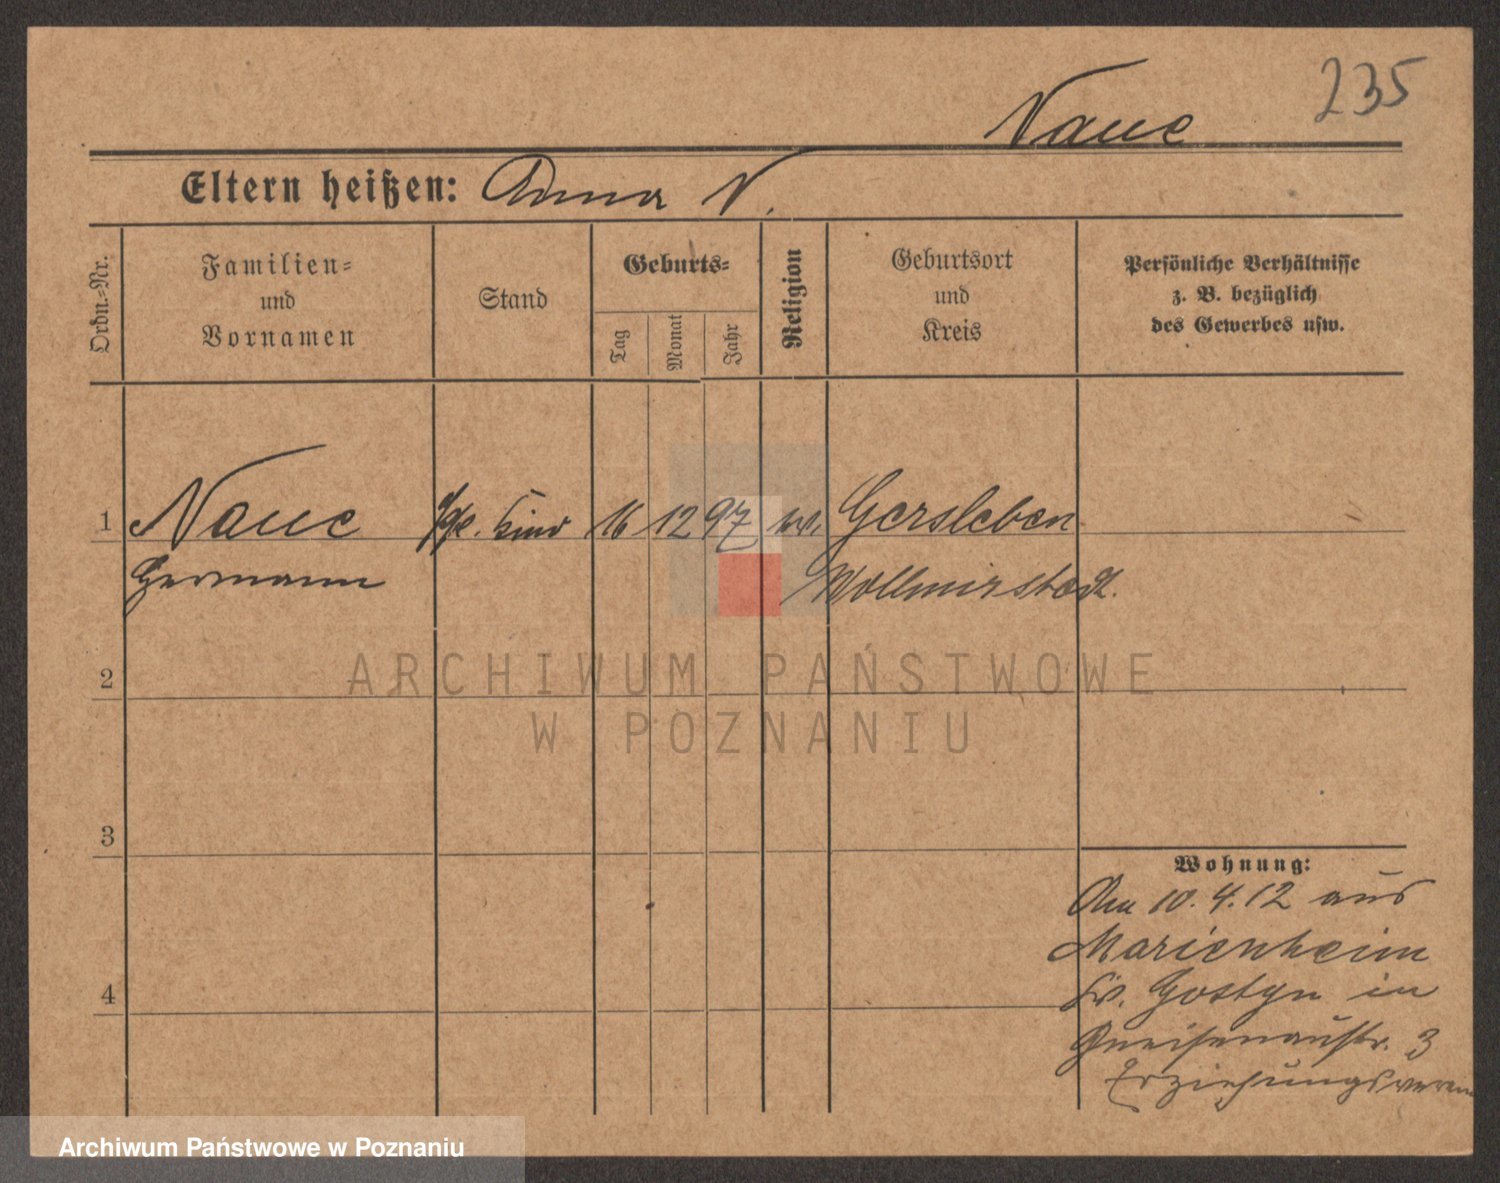 235
Naue
Eltern heißen: Anna N.
Ordn.=Nr.
Familien=
und
Vornamen
Stand
Geburts=
Tag
Monat
Jahr
Religion
Geburtsort
und
Kreis
Persönliche Verhältnisse
z. B. bezüglich
des Gewerbes usw.
1 Naue Kind 16 12 97 Gersleben
Hermann Wollmirstedt.
2
3
4
Wohnung:
Am 10.4.12 aus
Marienheim
Kr. Gostyn in
Gneisenaustr. 3
Erziehungsverein
ARCHIWUM PAŃSTWOWE
W POZNANIU
Archiwum Państwowe w Poznaniu